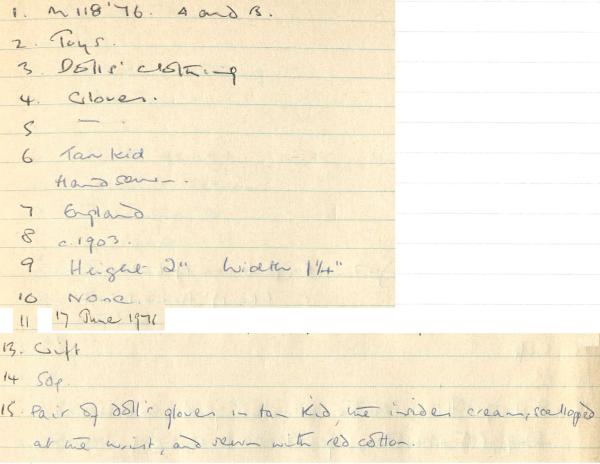 1. M 118 '76. A and B.
2. Toys.
3. Dolls' clothing
4. Gloves.
5 —.
6 Tan kid
Hand sewn.
7 England
8 c. 1903.
9 Height 2" Width 1¼"
10 None.
11 17 June 1976
13. Gift
14 50p.
15. Pair of doll's gloves in tan kid, the insides cream, scalloped
at the wrist, and sewn with red cotton.